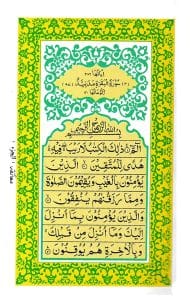 سُوْرَةُ الْبَقَرَةِ مَدَنِيَّةٌ
بِسْمِ اللهِ الرَّحْمٰنِ الرَّحِيْمِ
الٓمّٓ ۚ ذٰلِكَ الْكِتٰبُ لَا رَيْبَ ۛ فِيْهِ ۛ
هُدًى لِّلْمُتَّقِيْنَ ۙ الَّذِيْنَ
يُؤْمِنُوْنَ بِالْغَيْبِ وَيُقِيْمُوْنَ الصَّلٰوةَ
وَمِمَّا رَزَقْنٰهُمْ يُنْفِقُوْنَ ۙ
وَالَّذِيْنَ يُؤْمِنُوْنَ بِمَآ اُنْزِلَ
اِلَيْكَ وَمَآ اُنْزِلَ مِنْ قَبْلِكَ ۚ
وَبِالْاٰخِرَةِ هُمْ يُوْقِنُوْنَ